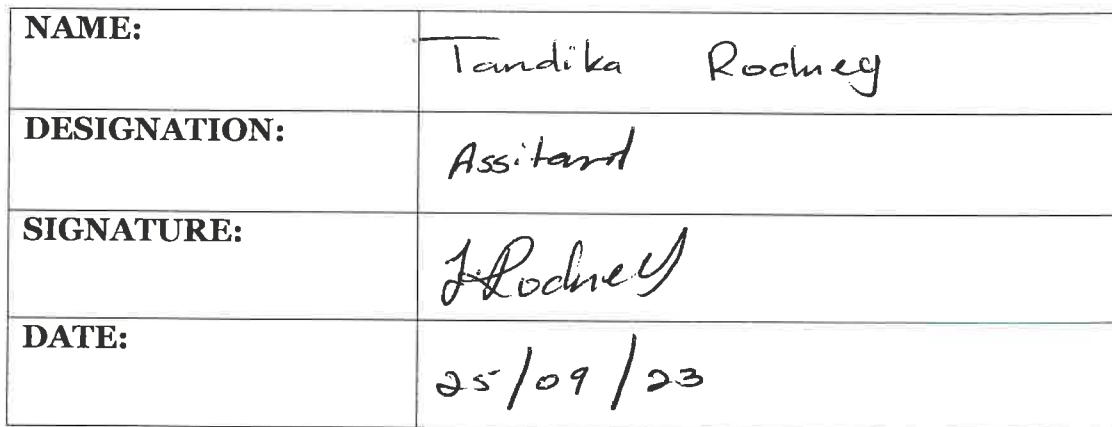 NAME: Tandika Rodney
DESIGNATION: Assitant
SIGNATURE: J.Rodney
DATE: 25/09/23